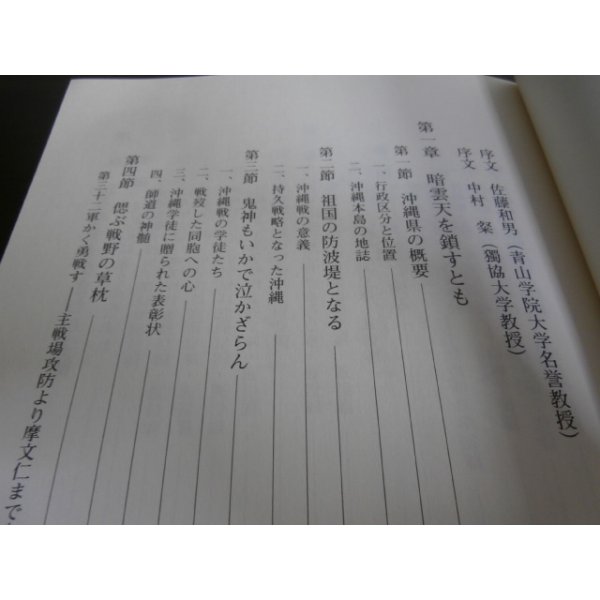 序文　佐藤和男（青山学院大学名誉教授）
序文　中村　粲（獨協大学教授）
第一章　暗雲天を鎖すとも
第一節　沖縄県の概要
一、行政区分と位置
二、沖縄本島の地誌
第二節　祖国の防波堤となる
一、沖縄戦の意義
二、持久戦略となった沖縄
第三節　鬼神もいかで泣かざらん
一、沖縄戦の学徒たち
二、戦歿した同胞への心
三、沖縄学徒に贈られた表彰状
四、師道の神髄
第四節　偲ぶ戦野の草枕
第三十二軍かく勇戦す——主戦場攻防より摩文仁まで